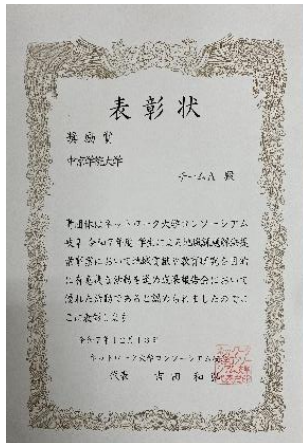 表彰状
奨励賞
中京学院大学
チームA 殿
貴団体はネットワーク大学コンソーシアム
岐阜 令和7年度 学生による地域課題解決提
案事業において地域貢献や教育研究を目的
に有意義な活動を進め成果報告会において
優れた活動であると認められましたのでこ
こに表彰します
令和7年12月13日
ネットワーク大学コンソーシアム岐阜
代表 吉田 和弘